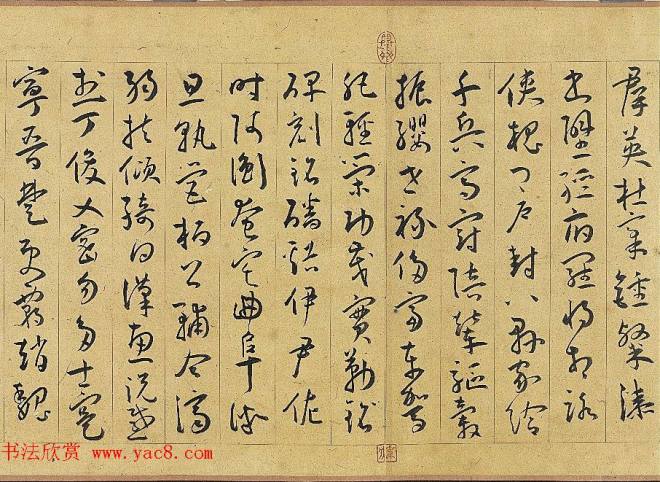 群英杜稾鍾隸漆
書壁經府羅將相路
俠槐卿戶封八縣家給
千兵高冠陪輦驅轂
振纓世祿侈富車駕
肥輕策功茂實勒銘
碑刻銘磻溪伊尹佐
時阿衡奄宅曲阜微
旦孰營桓公輔合濟
弱扶傾綺回漢惠說感
武丁俊乂密勿多士寔
寧晉楚更霸趙魏
书法欣赏 www.yac8.com